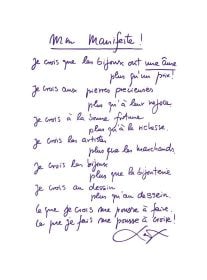 Mon Manifeste !
Je crois que les bijoux ont une âme
plus qu'un prix !
Je crois aux pierres précieuses
plus qu'à leur
Je crois à la bonne fortune
plus qu'à la richesse.
Je crois les artistes
plus que les marchands.
Je crois les bijoux
plus que la bijouterie
Je crois au dessin
plus qu'au dessein.
Ce que je crois me pousse à faire.
Ce que je fais me pousse à croire !